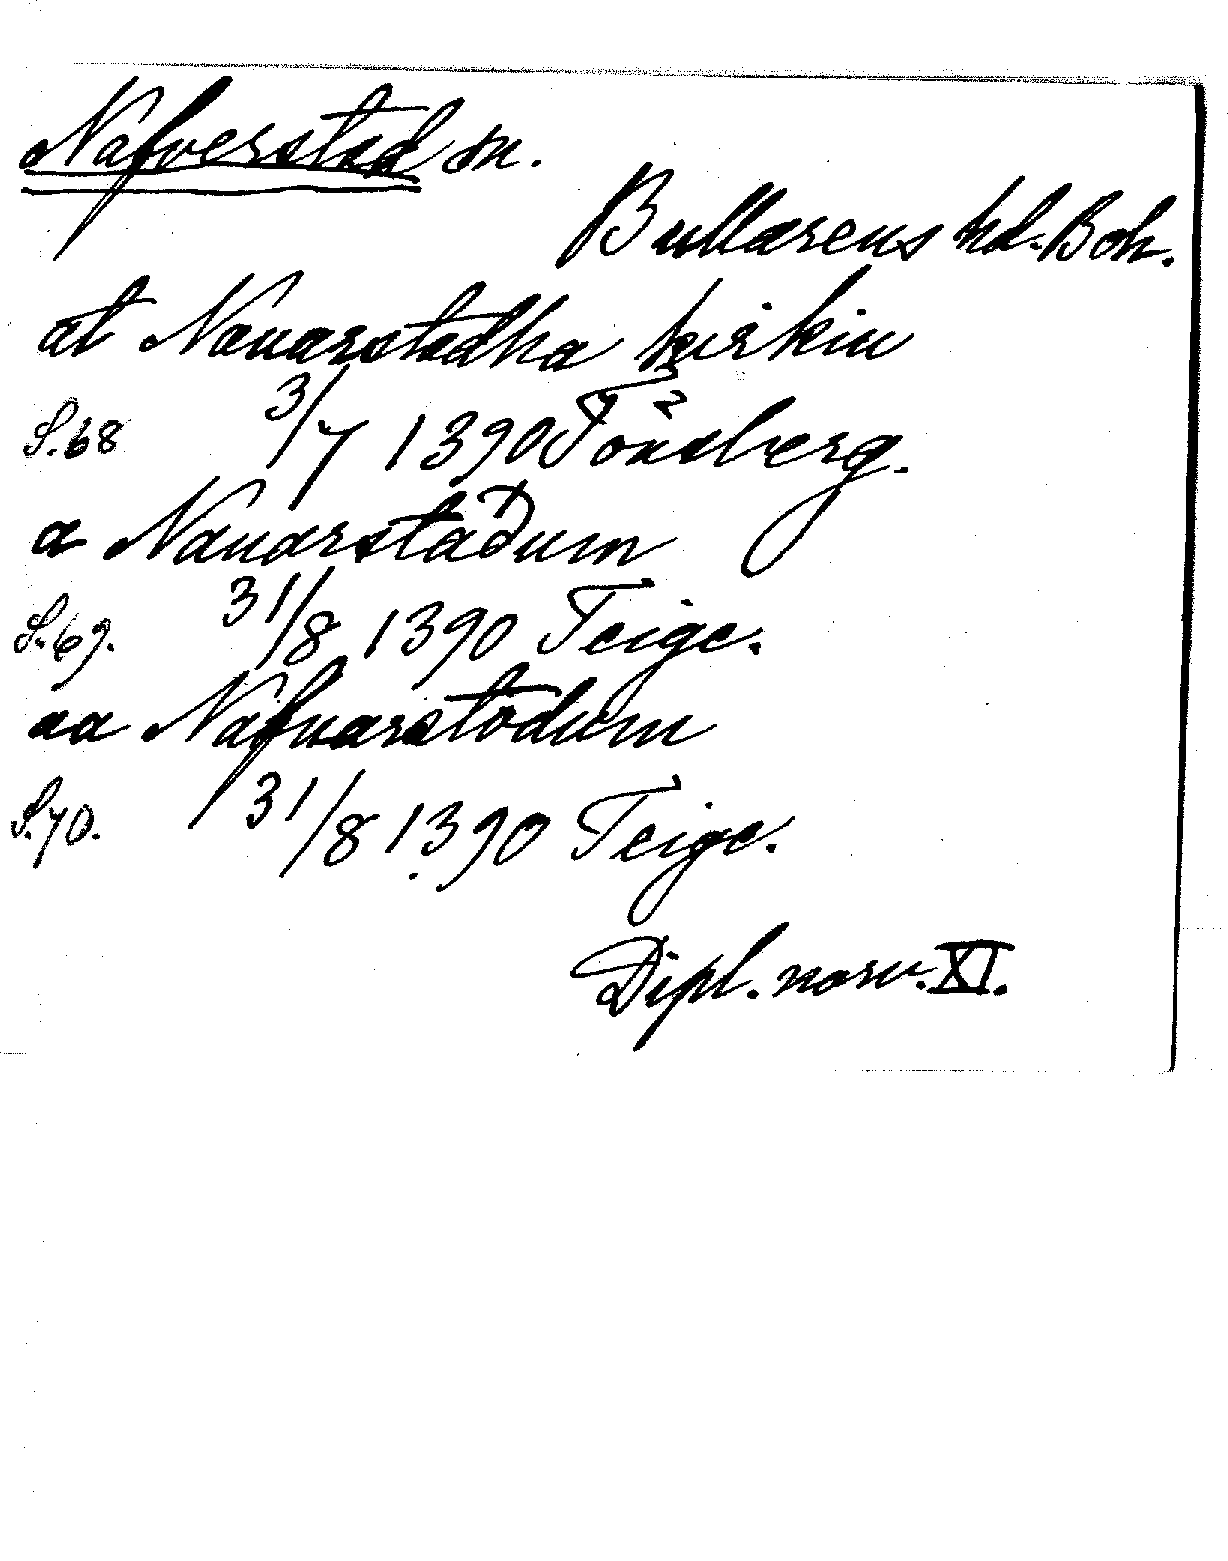 Nafverstad sn.
Bullarens hd. Boh.
at Nauarstadha kirkiu
S. 68 3/7 1390 Tönsberg.
a Nauarstaðum
S. 69. 31/8 1390 Teige.
aa Nafuarstodum
S. 70. 31/8 1390 Teige.
Dipl. norv. XI.